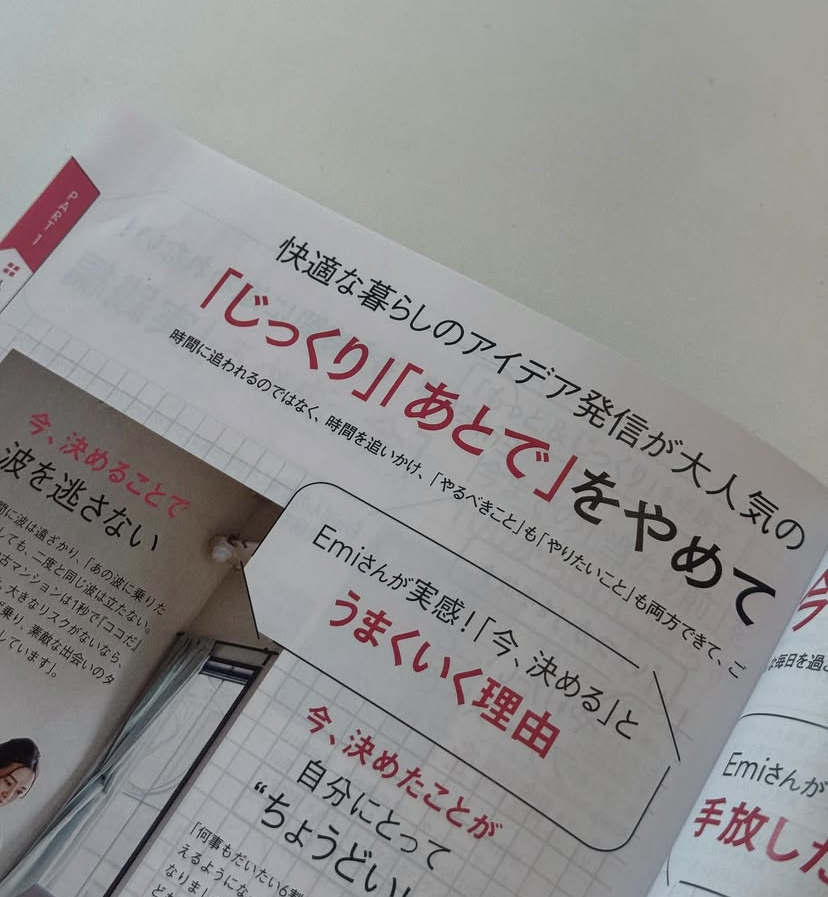 PART 1
快適な暮らしのアイデア発信が大人気の
「じっくり」「あとで」をやめて
時間に追われるのではなく、時間を追いかけ、「やるべきこと」も「やりたいこと」も両方できて、ご
今、決めることで
波を逃さない
間に波は遠ざかり、「あの波に乗りた
しても、二度と同じ波は立たない。
古マンションは1秒で「ココだ」
大きなリスクがないなら、
乗り、素敵な出会いのタ
しています」。
Emiさんが実感!「今、決める」と
うまくいく理由
今、決めたことが
自分にとって
“ちょうどいい
「何事もだいたい6割
えるようにな
なりまし
今
な毎日を過ご
Emiさんが
手放した